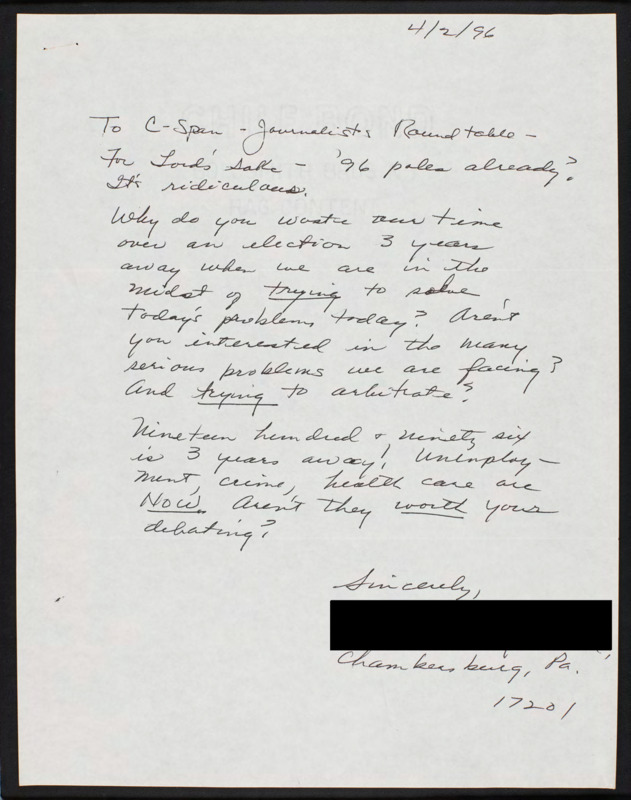 4/2/96
To C-Span - Journalists Roundtable -
For Lord's sake - '96 poles already?
It's ridiculous.
Why do you waste our time
over an election 3 years
away when we are in the
midst of trying to solve
today's problems today? Aren't
you interested in the many
serious problems we are facing?
And trying to arbitrate?
Nineteen hundred & ninety six
is 3 years away! Unemploy-
ment, crime, health care are
Now. Aren't they worth your
debating?
Sincerely,
Chambersburg, Pa.
17201